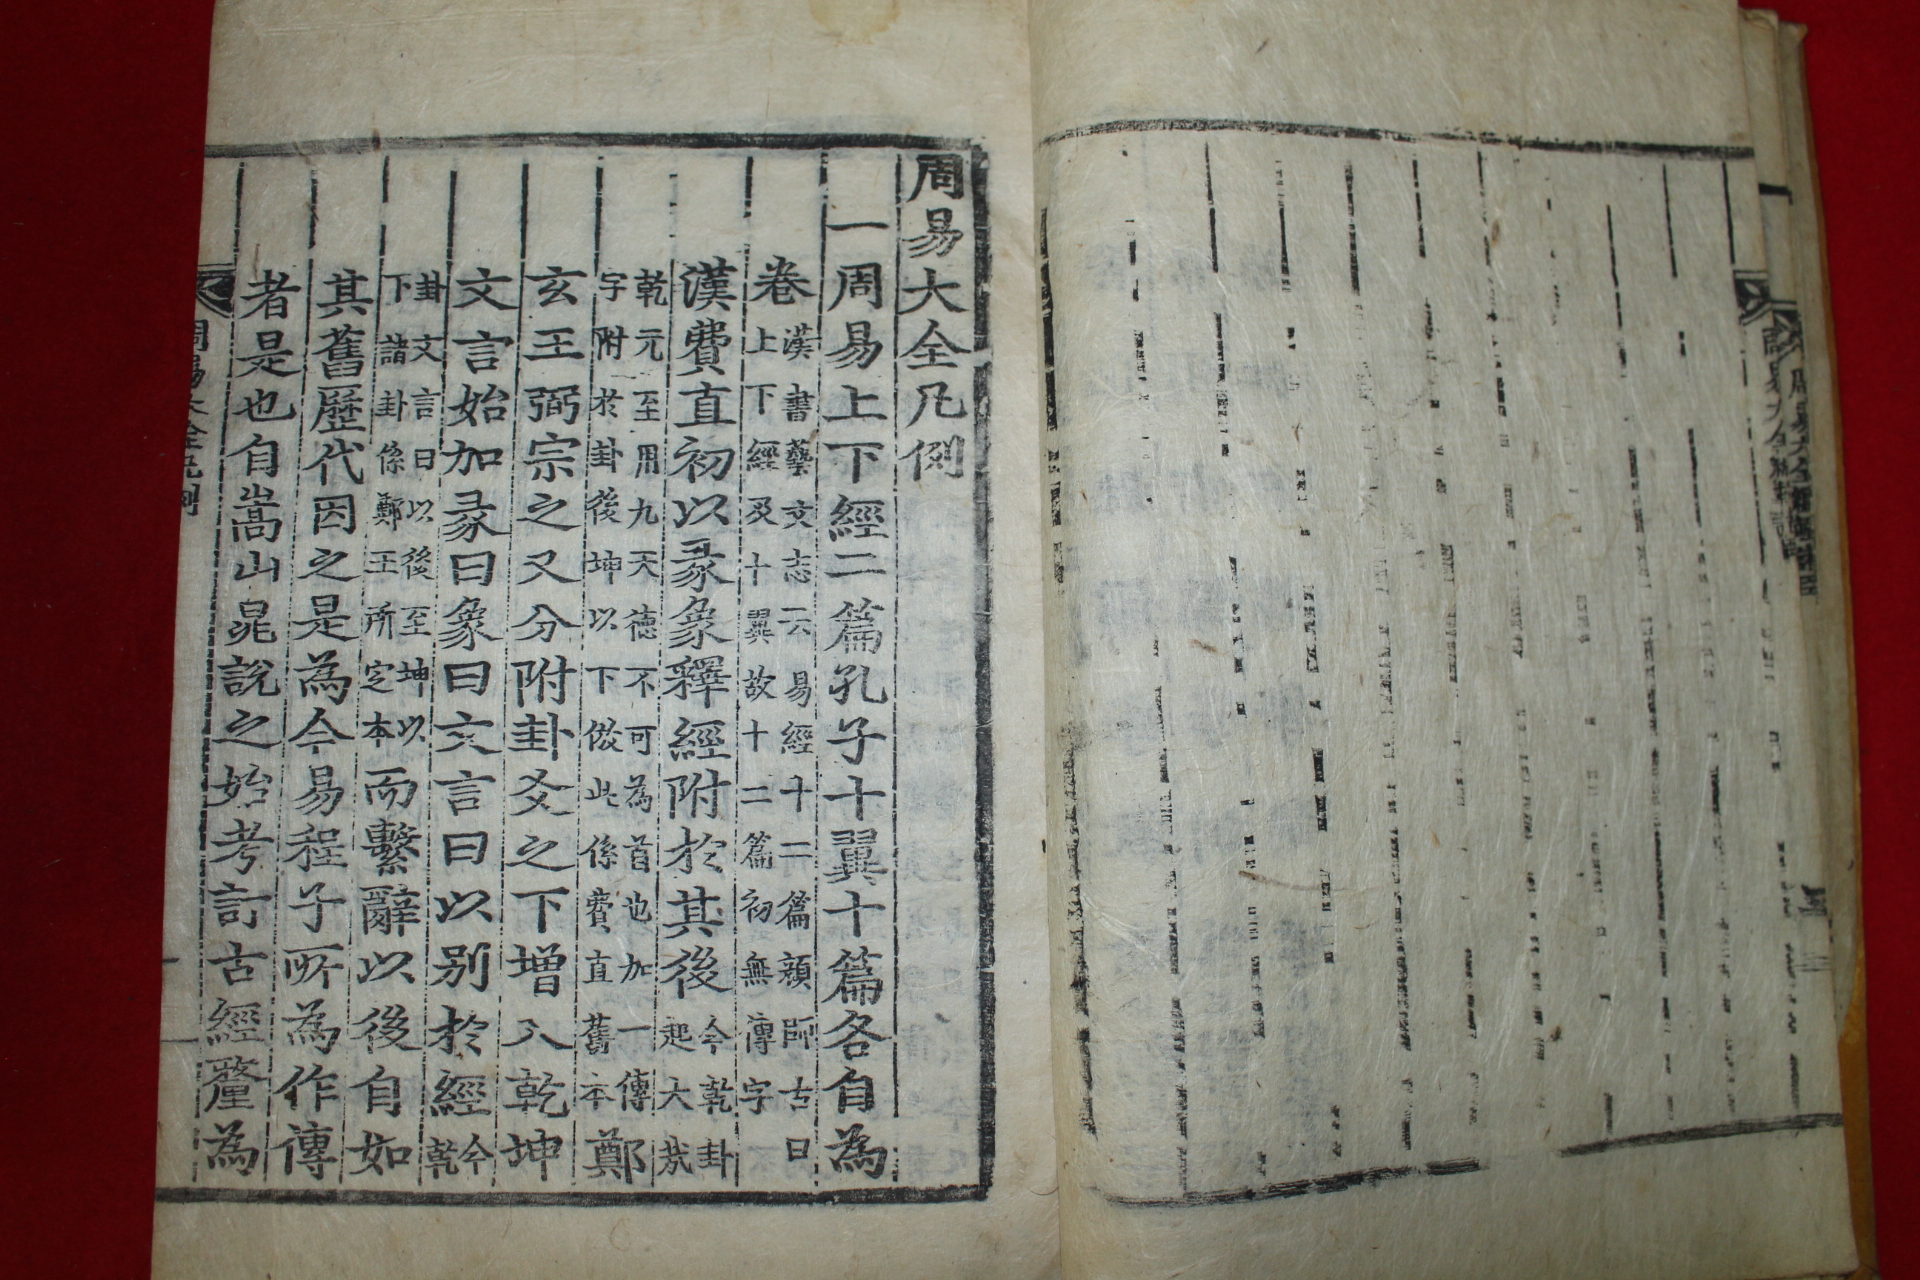 周易大全凡例
一周易上下經二篇孔子十翼十篇各自為
卷漢書藝文志云易經十二篇顏師古曰
上下經及十翼故十二篇初無傳字
漢費直初以彖象釋經附於其後今乾卦
起大哉
乾元至用九天德不可為首也加一傳
字附於卦後坤以下倣此係費直舊本鄭
玄王弼宗之又分附卦爻之下增入乾坤
文言始加彖曰象曰文言曰以別於經今
乾
卦文言曰以後至坤以
下諸卦係鄭王所定本而繫辭以後自如
其舊歷代因之是為今易程子所為作傳
者是也自嵩山晁說之始考訂古經釐為
周易大全凡例